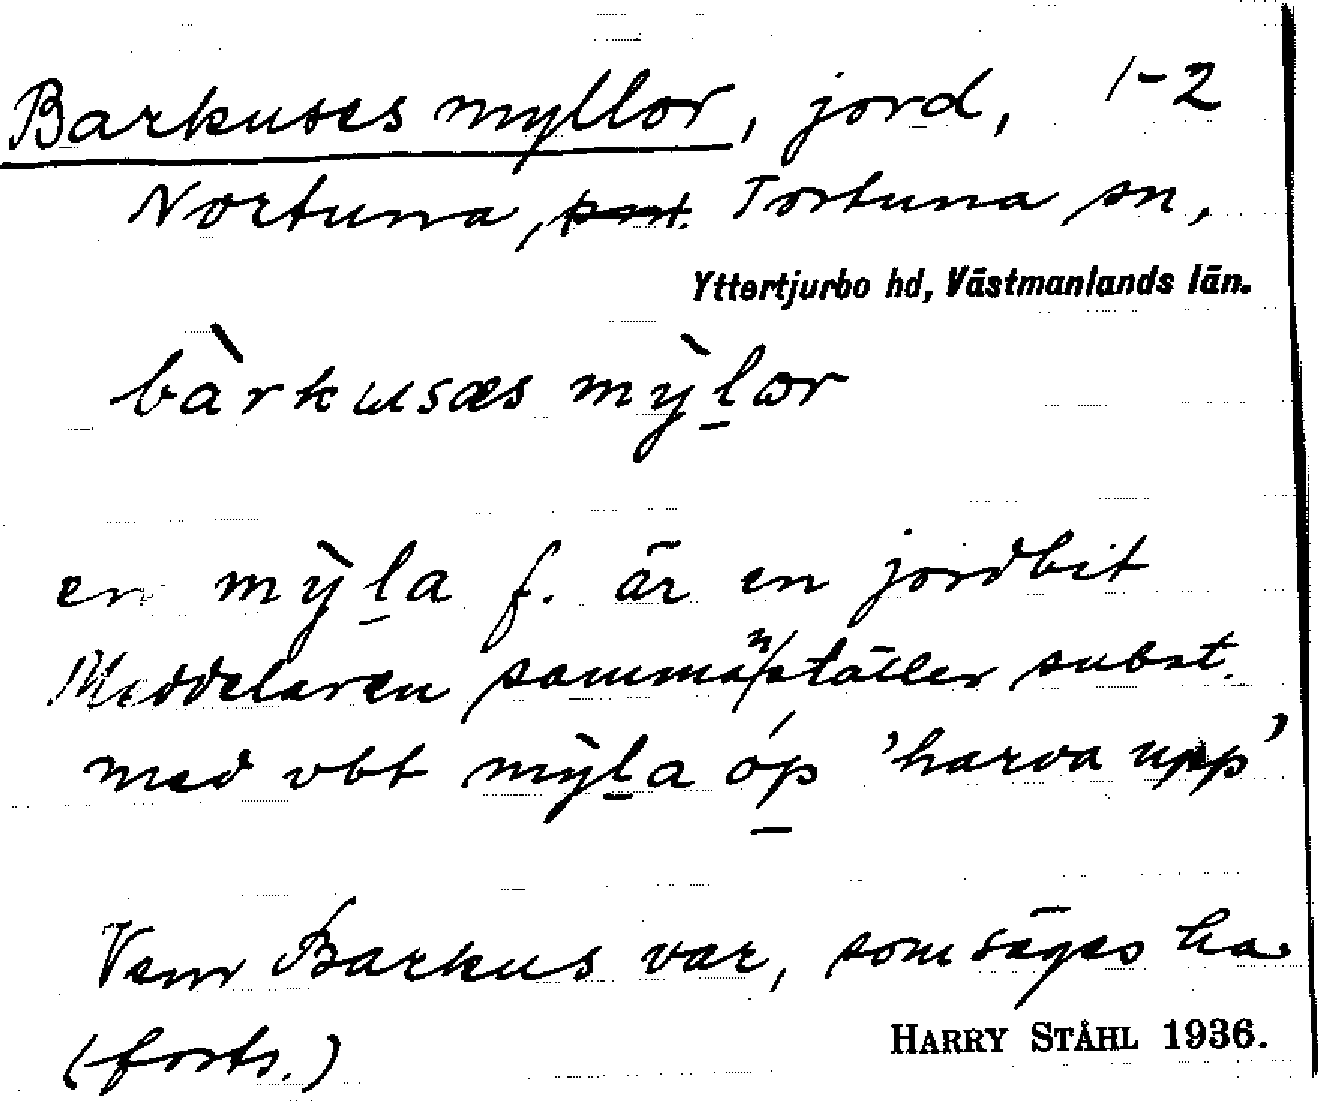 Barkuses myllor, jord, 1-2
Nortuna, Tortuna sn,
Yttertjurbo hd, Västmanlands län.
bàrkusæs mỳl̠ɷr
en mỳl̠a f. är en jordbit
Meddelaren sammanställer subst.
med vbt mỳl̠a óp̠ 'harva upp'
Vem Barkus var, som säges ha
(forts.)
HARRY STÅHL 1936.